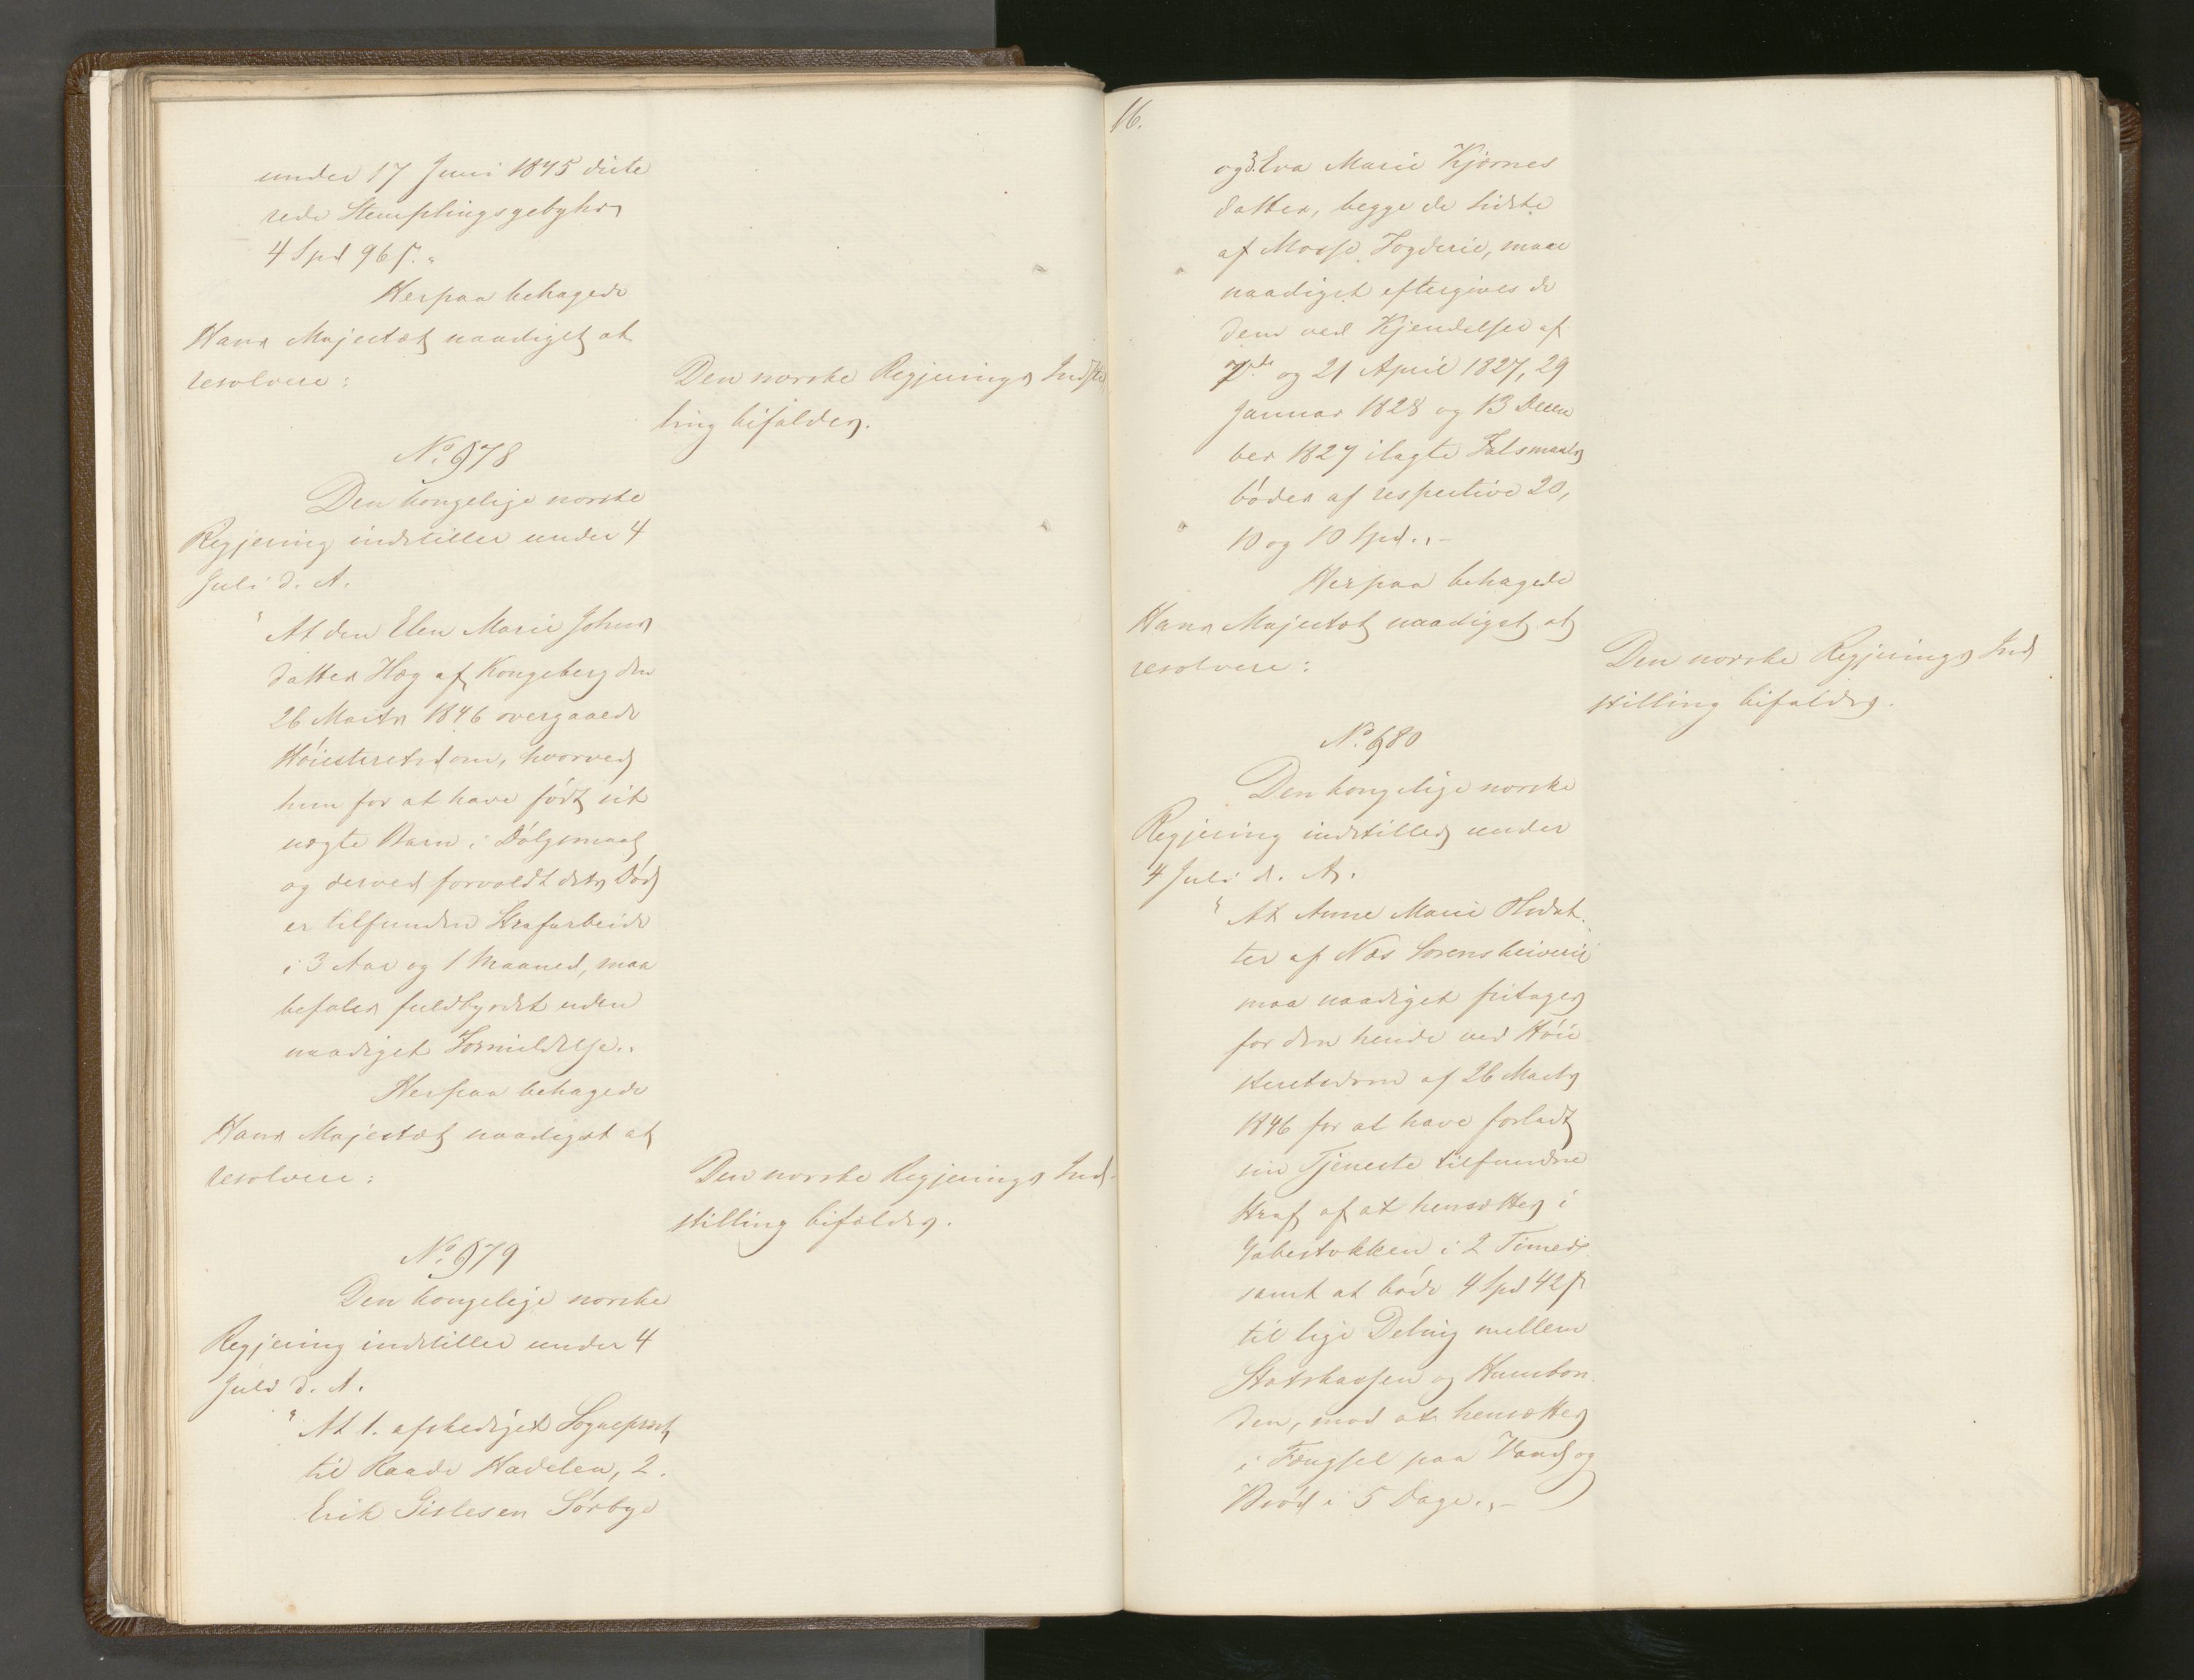 under 17 Juni 1845 dicte
rede Stemplingsgebyhr
4 Spd 96 s."
Herpaa behagede
Hans Majestæt naadigst at
resolvere:
Den norske Regjerings Indstil
ling bifaldes.
No. 678
Den kongelige norske
Regjering indstiller under 4
Juli d. A.
"At den Elen Marie Johns
datter Hæg af Kongsberg den
26 Marts 1846 overgaaede
Høiesteretsdom, hvorved
hun for at have født sit
uægte Barn i Dølgsmaal
og derved forvoldt dets Død
er tilfunden Strafarbeide
i 3 Aar og 1 Maaned, maa
befales fuldbyrdet uden
naadigst Formildelse."
Herpaa behagede
Hans Majestæt naadigst at
resolvere:
Den norske Regjerings Ind-
stilling bifaldes.
No. 679
Den kongelige norske
Regjering indstiller under 4
Juli d. A.
"At 1. afskediget Sogneprest
til Raade Hadelen, 2.
Erik Gislesen Sørbye
16.
og 3. Eva Marie Kjørnes
datter, begge de sidste
af Mosse Fogderie, maae
naadigst eftergives de
dem ved Kjendelser af
7de og 21 April 1827, 29
Januar 1828 og 13 Decem
ber 1827 ilagte Falsmaals
bøder af respective 20,
10 og 10 Spd."-
Herpaa behagede
Hans Majestæt naadigst at
resolvere:
Den norske Regjerings Ind
stilling bifaldes.
No. 680
Den kongelige norske
Regjering indstiller under
4 Juli d. A.
"At Anne Marie Olsdat-
ter af Næs Sorenskriverie
maa naadigst fritages
for den hende ved Høie
steretsdom af 26 Marts
1846 for at have forladt
sin Tjeneste tilfundne
Straf af at hensættes i
Gabestokken i 2 Timer
samt at bøde 4 Spd 42 s
til lige Deling mellem
Statskassen og Huusbon
den, mod at hensættes
i Fængsel paa Vand og
Brød i 5 Dage."-